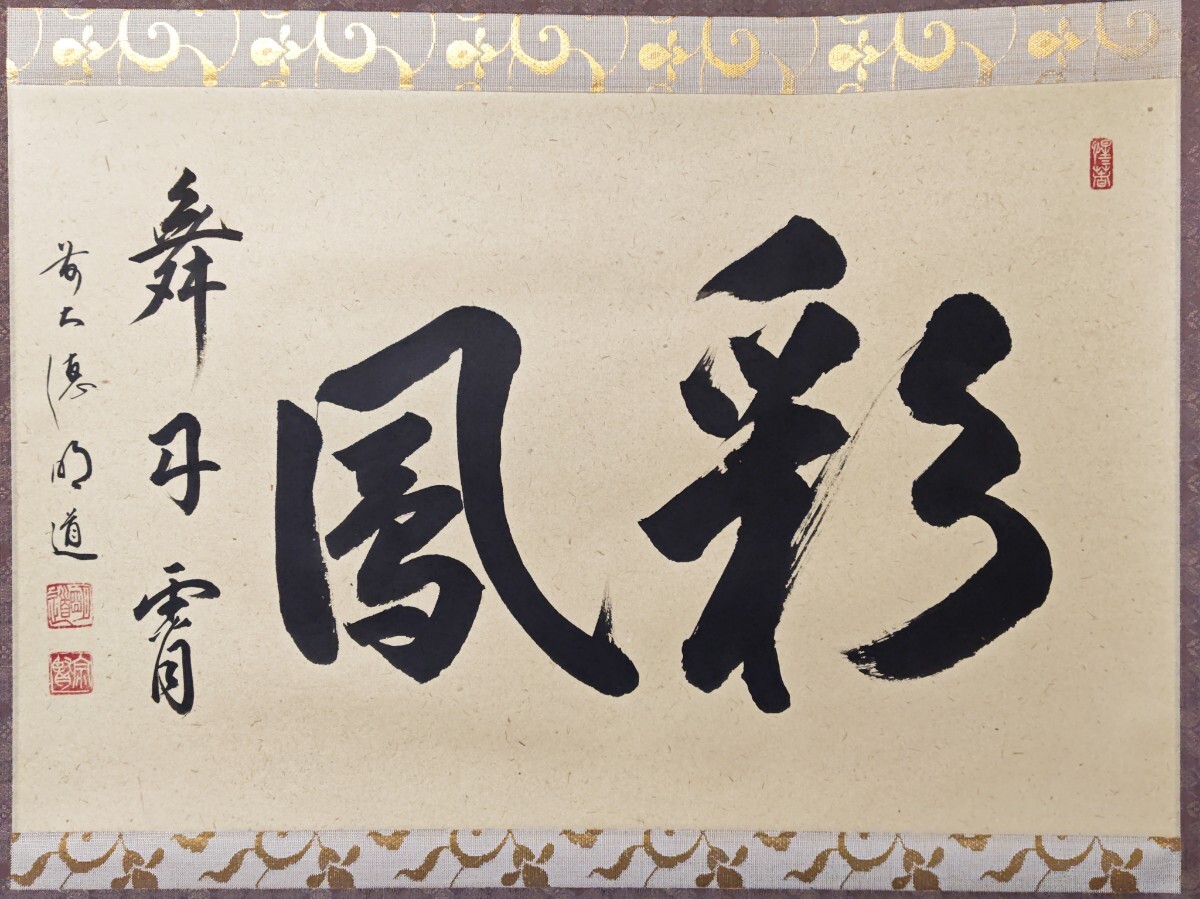 彩鳳
舞丹霄
前大徳明道